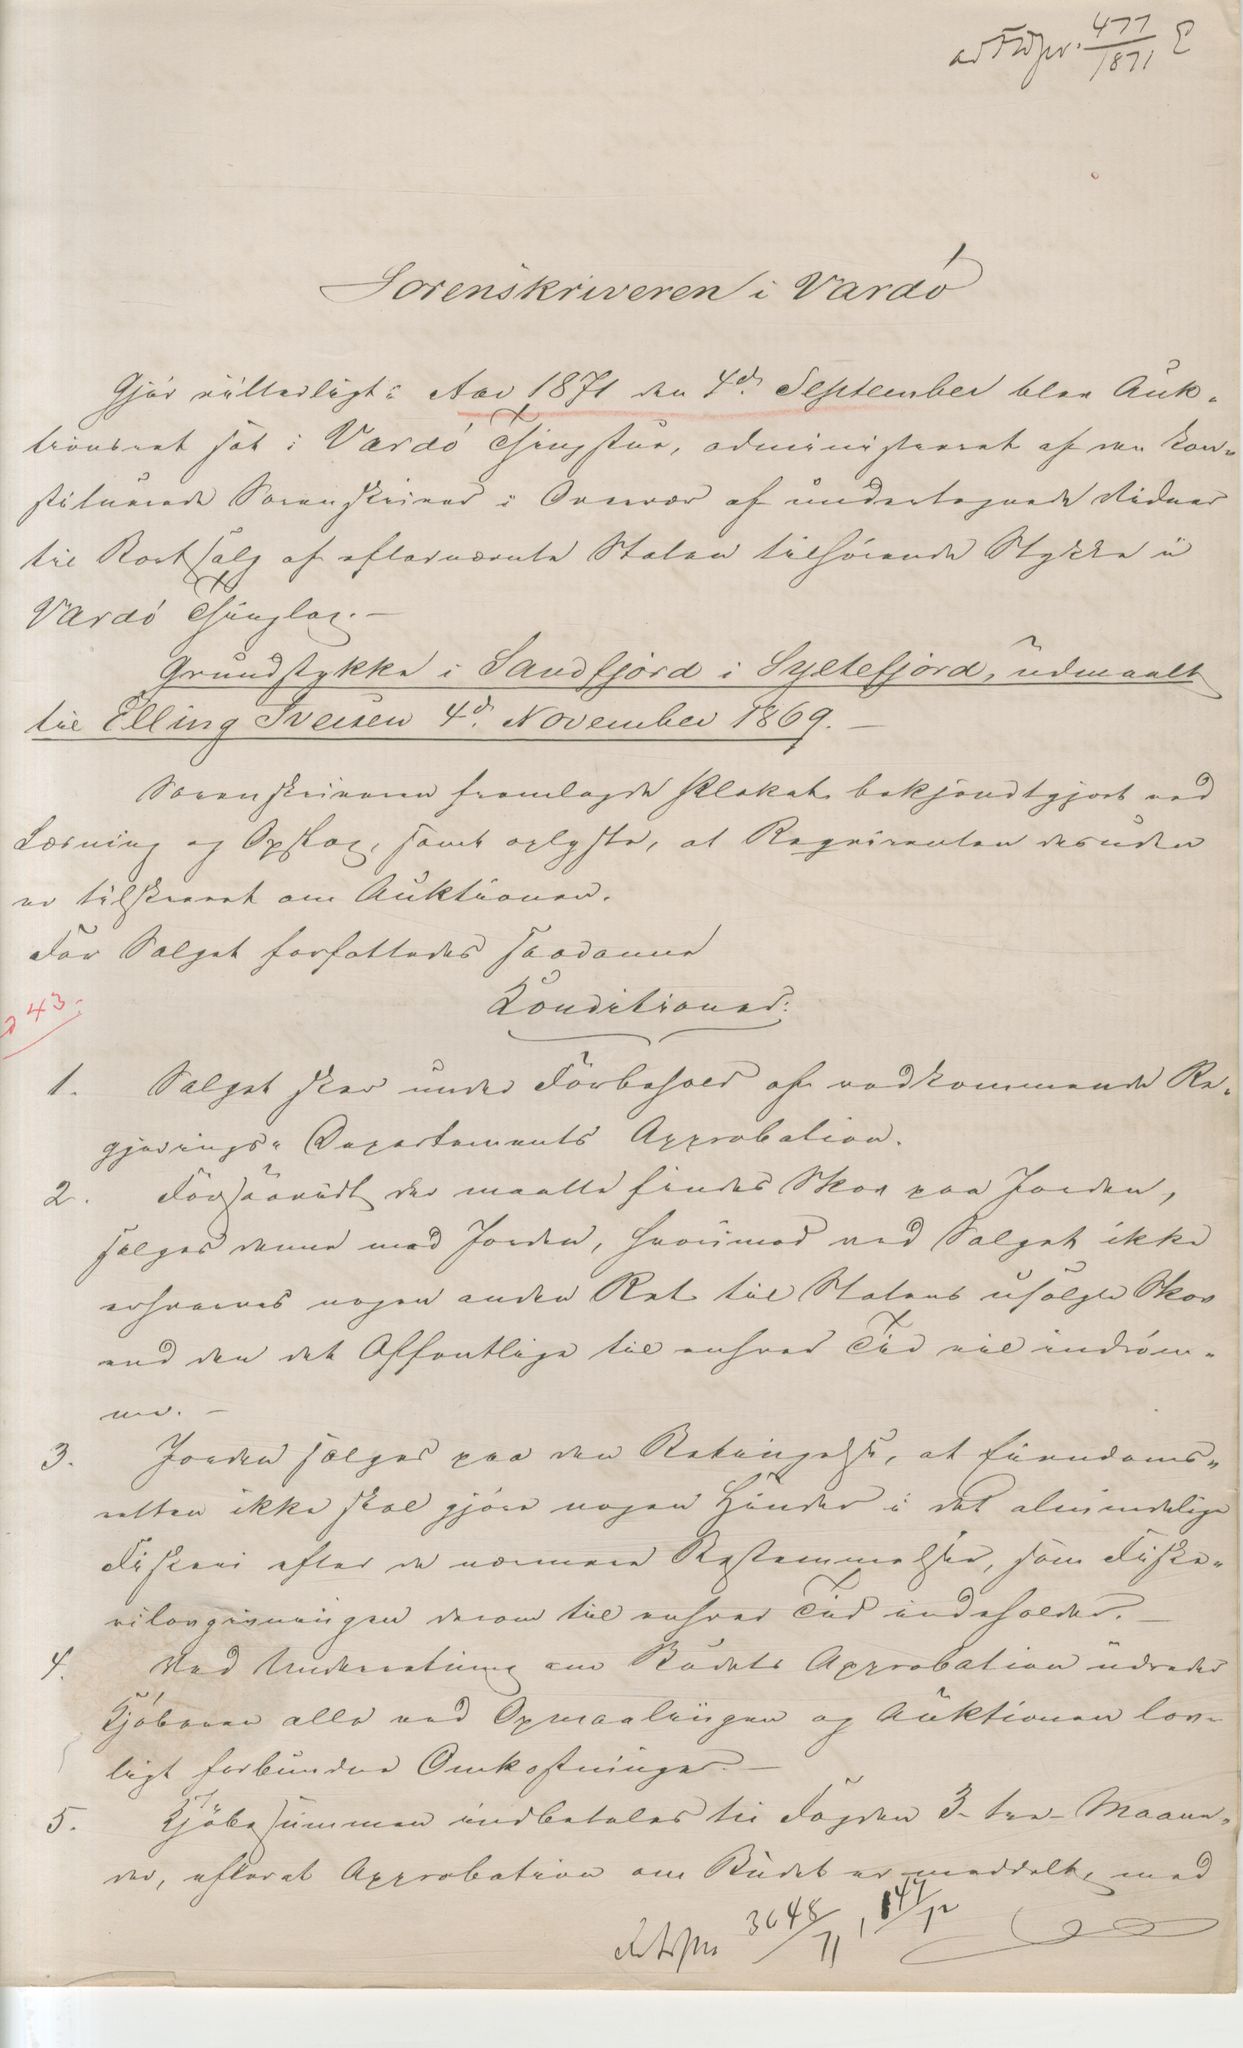 477
1871
Sorenskriveren i Vardö
Gjör vitterligt: Aar 1871 den 4d September blev Auk-
tionsret sat i Vardö Thingstue, administreret af den kon-
stituerede Sorenskriver i Overvær af undertegnede Vidner
til Bortsalg af efternævnte Staten tilhörende Stykke i
Vardö Thinglag. –
Grundstykke i Sandfjord i Syltefjord, udmaalt
til Elling Iversen 4d November 1869. –
Sorenskriveren fremlagde Plakat bekjendtgjort ved
Læsning og Opslag, samt oplyste, at Reqvirenten desuden
er tilskrevet om Auktionen.
For Salget forfattedes saadanne
Konditioner:
43.
1. Salget sker under Forbehold af vedkommende Re-
gjerings-Departements Approbation.
2. Forsaavidt der maatte findes Skov paa Jorden,
sælges denne med Jorden, hvorimod ved Salget ikke
erhverves nogen anden Ret til Statens usolgte Skov
end den det Offentlige til enhver Tid vil indröm-
me. –
3. Jorden sælges paa den Betingelse, at Eiendoms-
retten ikke skal gjöre nogen Hinder i det almindelige
Fiskeri efter de nærmere Bestemmelser, som Fiske-
rilovgivningen derom til enhver Tid indeholder. –
4. Ved Underretning om Budets Approbation udreder
Kjöberen alle ved Opmaalingen og Auktionen lov-
ligt forbundne Omkostninger. –
5. Kjöbesummen indbetales til Fogden 3 - tre - Maane-
der, efterat Approbation om Budet er meddelt, med
3648/71, 147/72